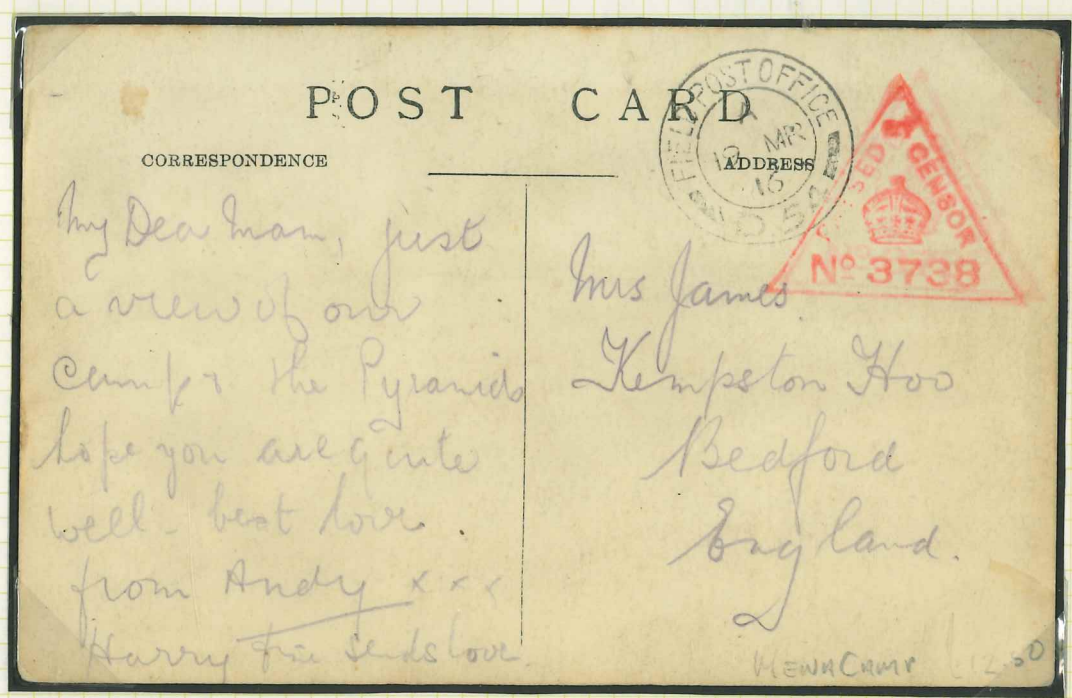 POST CARD
CORRESPONDENCE
ADDRESS
FIELD POST OFFICE
MR
16
D.54
PASSED CENSOR
Nº 3738
My Dear Mam, just
a view of our
camp & the Pyramids
hope you are quite
well - best love
from Andy x x x
Harry sends love.
Mrs James
Kempston Hoo
Bedford
England.
MENA CAMP
12.50